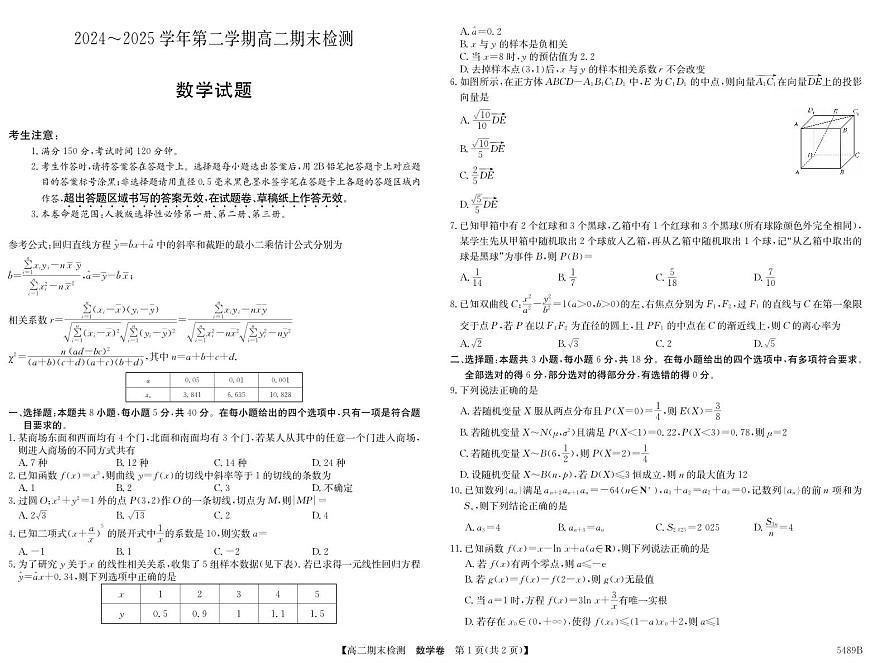 2024～2025 学年第二学期高二期末检测
数学试题
考生注意：
1. 满分 150 分，考试时间 120 分钟。
2. 考生作答时，请将答案答在答题卡上。选择题每小题选出答案后，用 2B 铅笔把答题卡上对应题
目的答案标号涂黑；非选择题请用直径 0.5 毫米黑色墨水签字笔在答题卡上各题的答题区域内
作答，超出答题区域书写的答案无效，在试题卷、草稿纸上作答无效。
3. 本卷命题范围：人教版选择性必修第一册、第二册、第三册。
参考公式：回归直线方程 ŷ=b̂x+â 中的斜率和截距的最小二乘估计公式分别为
b̂=(∑_{i=1}^{n}x_iy_i−n x̄ ȳ)/(∑_{i=1}^{n}x_i²−n x̄²)，â=ȳ−b̂ x̄；
相关系数 r=∑_{i=1}^{n}(x_i−x̄)(y_i−ȳ)/(√(∑_{i=1}^{n}(x_i−x̄)²)√(∑_{i=1}^{n}(y_i−ȳ)²))=(∑_{i=1}^{n}x_iy_i−nx̄ȳ)/(√(∑_{i=1}^{n}x_i²−nx̄²)√(∑_{i=1}^{n}y_i²−nȳ²))
χ²=n(ad−bc)²/((a+b)(c+d)(a+c)(b+d))，其中 n=a+b+c+d.
α 0.05 0.01 0.001
x_α 3.841 6.635 10.828
一、选择题：本题共 8 小题，每小题 5 分，共 40 分。在每小题给出的四个选项中，只有一项是符合题
目要求的。
1. 某商场东面和西面均有 4 个门，北面和南面均有 3 个门，若某人从其中的任意一个门进入商场，
则进入商场的不同方式共有
A. 7 种 B. 12 种 C. 14 种 D. 24 种
2. 已知函数 f(x)=x³，则曲线 y=f(x)的切线中斜率等于 1 的切线的条数为
A. 1 B. 2 C. 3 D. 不确定
3. 过圆 O：x²+y²=1 外的点 P(3，2)作 O 的一条切线，切点为 M，则|MP|=
A. 2√3 B. √13 C. 2 D. 4
4. 已知二项式(x+a/x)⁵的展开式中1/x的系数是 10，则实数 a=
A. −1 B. 1 C. −2 D. 2
5. 为了研究 y 关于 x 的线性相关关系，收集了 5 组样本数据(见下表)，若已求得一元线性回归方程
ŷ=âx+0.34，则下列选项中正确的是
x 1 2 3 4 5
y 0.5 0.9 1 1.1 1.5
A. â=0.2
B. x 与 y 的样本是负相关
C. 当 x=8 时，y 的预估值为 2.2
D. 去掉样本点(3，1)后，x 与 y 的样本相关系数 r 不会改变
6. 如图所示，在正方体 ABCD−A₁B₁C₁D₁ 中，E 为 C₁D₁ 的中点，则向量A₁C₁→在向量DE→上的投影
向量是
A. √10/10 DE→
B. √10/5 DE→
C. 2/5 DE→
D. √5/5 DE→
D₁ E C₁
A₁ B₁
D C
A B
7. 已知甲箱中有 2 个红球和 3 个黑球，乙箱中有 1 个红球和 3 个黑球(所有球除颜色外完全相同)，
某学生先从甲箱中随机取出 2 个球放入乙箱，再从乙箱中随机取出 1 个球，记“从乙箱中取出的
球是黑球”为事件 B，则 P(B)=
A. 1/14 B. 1/7 C. 5/18 D. 7/10
8. 已知双曲线 C：x²/a²−y²/b²=1(a>0，b>0)的左、右焦点分别为 F₁，F₂，过 F₁ 的直线与 C 在第一象限
交于点 P，若 P 在以 F₁F₂ 为直径的圆上，且 PF₁ 的中点在 C 的渐近线上，则 C 的离心率为
A. √2 B. √3 C. 2 D. √5
二、选择题：本题共 3 小题，每小题 6 分，共 18 分。在每小题给出的四个选项中，有多项符合要求。
全部选对的得 6 分，部分选对的得部分分，有选错的得 0 分。
9. 下列说法正确的是
A. 若随机变量 X 服从两点分布且 P(X=0)=1/4，则 E(X)=3/8
B. 若随机变量 X～N(μ，σ²)且满足 P(X<1)=0.22，P(X<3)=0.78，则 μ=2
C. 若随机变量 X～B(6，1/2)，则 P(X=2)=1/4
D. 设随机变量 X～B(n，p)，若 D(X)≤3 恒成立，则 n 的最大值为 12
10. 已知数列{aₙ}满足 aₙ₊₂aₙ₊₁aₙ=−64(n∈N⁺)，a₁+a₂=a₂+a₃=0，记数列{aₙ}的前 n 项和为
Sₙ，则下列结论正确的是
A. a₃=4 B. aₙ₊₃=aₙ C. S₂₀₂₅=2 025 D. S₃ₙ/n=4
11. 已知函数 f(x)=x−ln x+a(a∈R)，则下列说法正确的是
A. 若 f(x)有两个零点，则 a≤−e
B. 若 g(x)=f(x)−f(2−x)，则 g(x)无最值
C. 当 a=1 时，方程 f(x)=3ln x+3/x有唯一实根
D. 若存在 x₀∈(0，+∞)，使得 f(x₀)≤(1−a)x₀+2，则 a≤1
【高二期末检测 数学卷 第 1 页(共 2 页)】
5489B